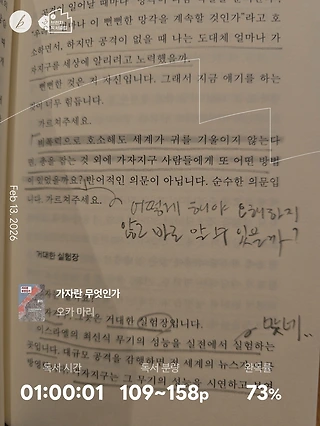 공격이 있어날 때마다
이 뻔뻔한 망각을 계속할 것인가"라고 호
소하면서, 하지만 공격이 없을 때 나는 도대체 얼마나 가
자지구를 세상에 알리려고 노력했을까.
뻔뻔한 것은 저 자신입니다. 그래서 지금 얘기를 하는
것이 너무 힘듭니다.
가르쳐주세요.
비폭력으로 호소해도 세계가 귀를 기울이지 않는다
면, 총을 잡는 것 외에 가자지구 사람들에게 또 어떤 방법
이 있었을까요? 반어적인 의문이 아닙니다. 순수한 의문입
니다. 가르쳐주세요.
어떻게 해야 오해하지
않고 바로 알 수 있을까?
Feb 13, 2026
거대한 실험장
가자란 무엇인가
오카 마리
거대한 실험장입니다.
맞네..
이스라엘의 최신식 무기의 성능을 실전에서 실험하는
곳입니다. 대규모 공격을 감행하면 전 세계의 뉴스가
가자지구는 그 무기의 성능을 시연하고
독서 시간
독서 분량
완독률
01:00:01
109~158p
73%